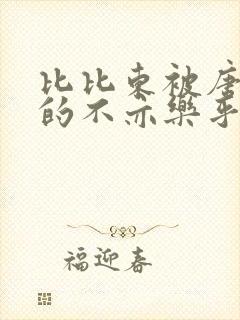 比比东被唐
的不亦乐乎
福迎春